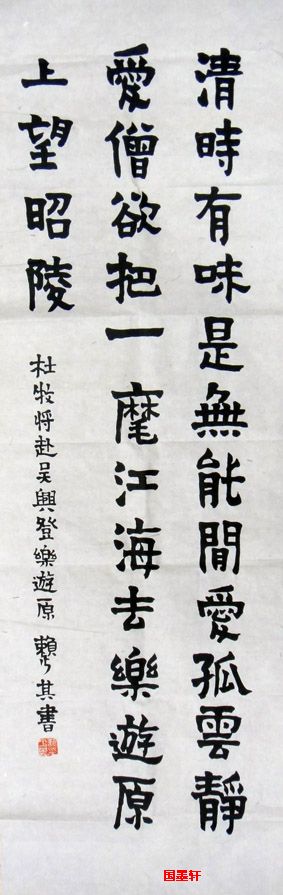 清時有味是無能閒愛孤雲靜
愛僧欲把一麾江海去樂遊原
上望昭陵
杜牧将赴吴興登樂遊原 賴少其書
国墨轩